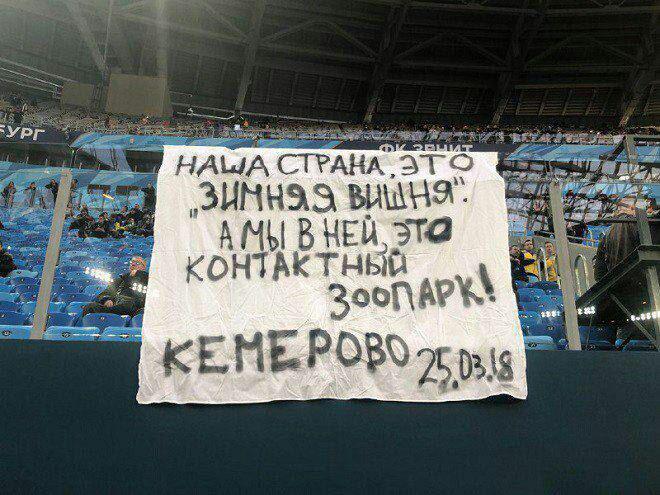 БУРГ
ФК ЗЕНИТ
НАША СТРАНА, ЭТО
"ЗИМНЯЯ ВИШНЯ".
"А МЫ В НЕЙ, ЭТО
КОНТАКТНЫЙ
ЗООПАРК!
КЕМЕРОВО 25.03.18